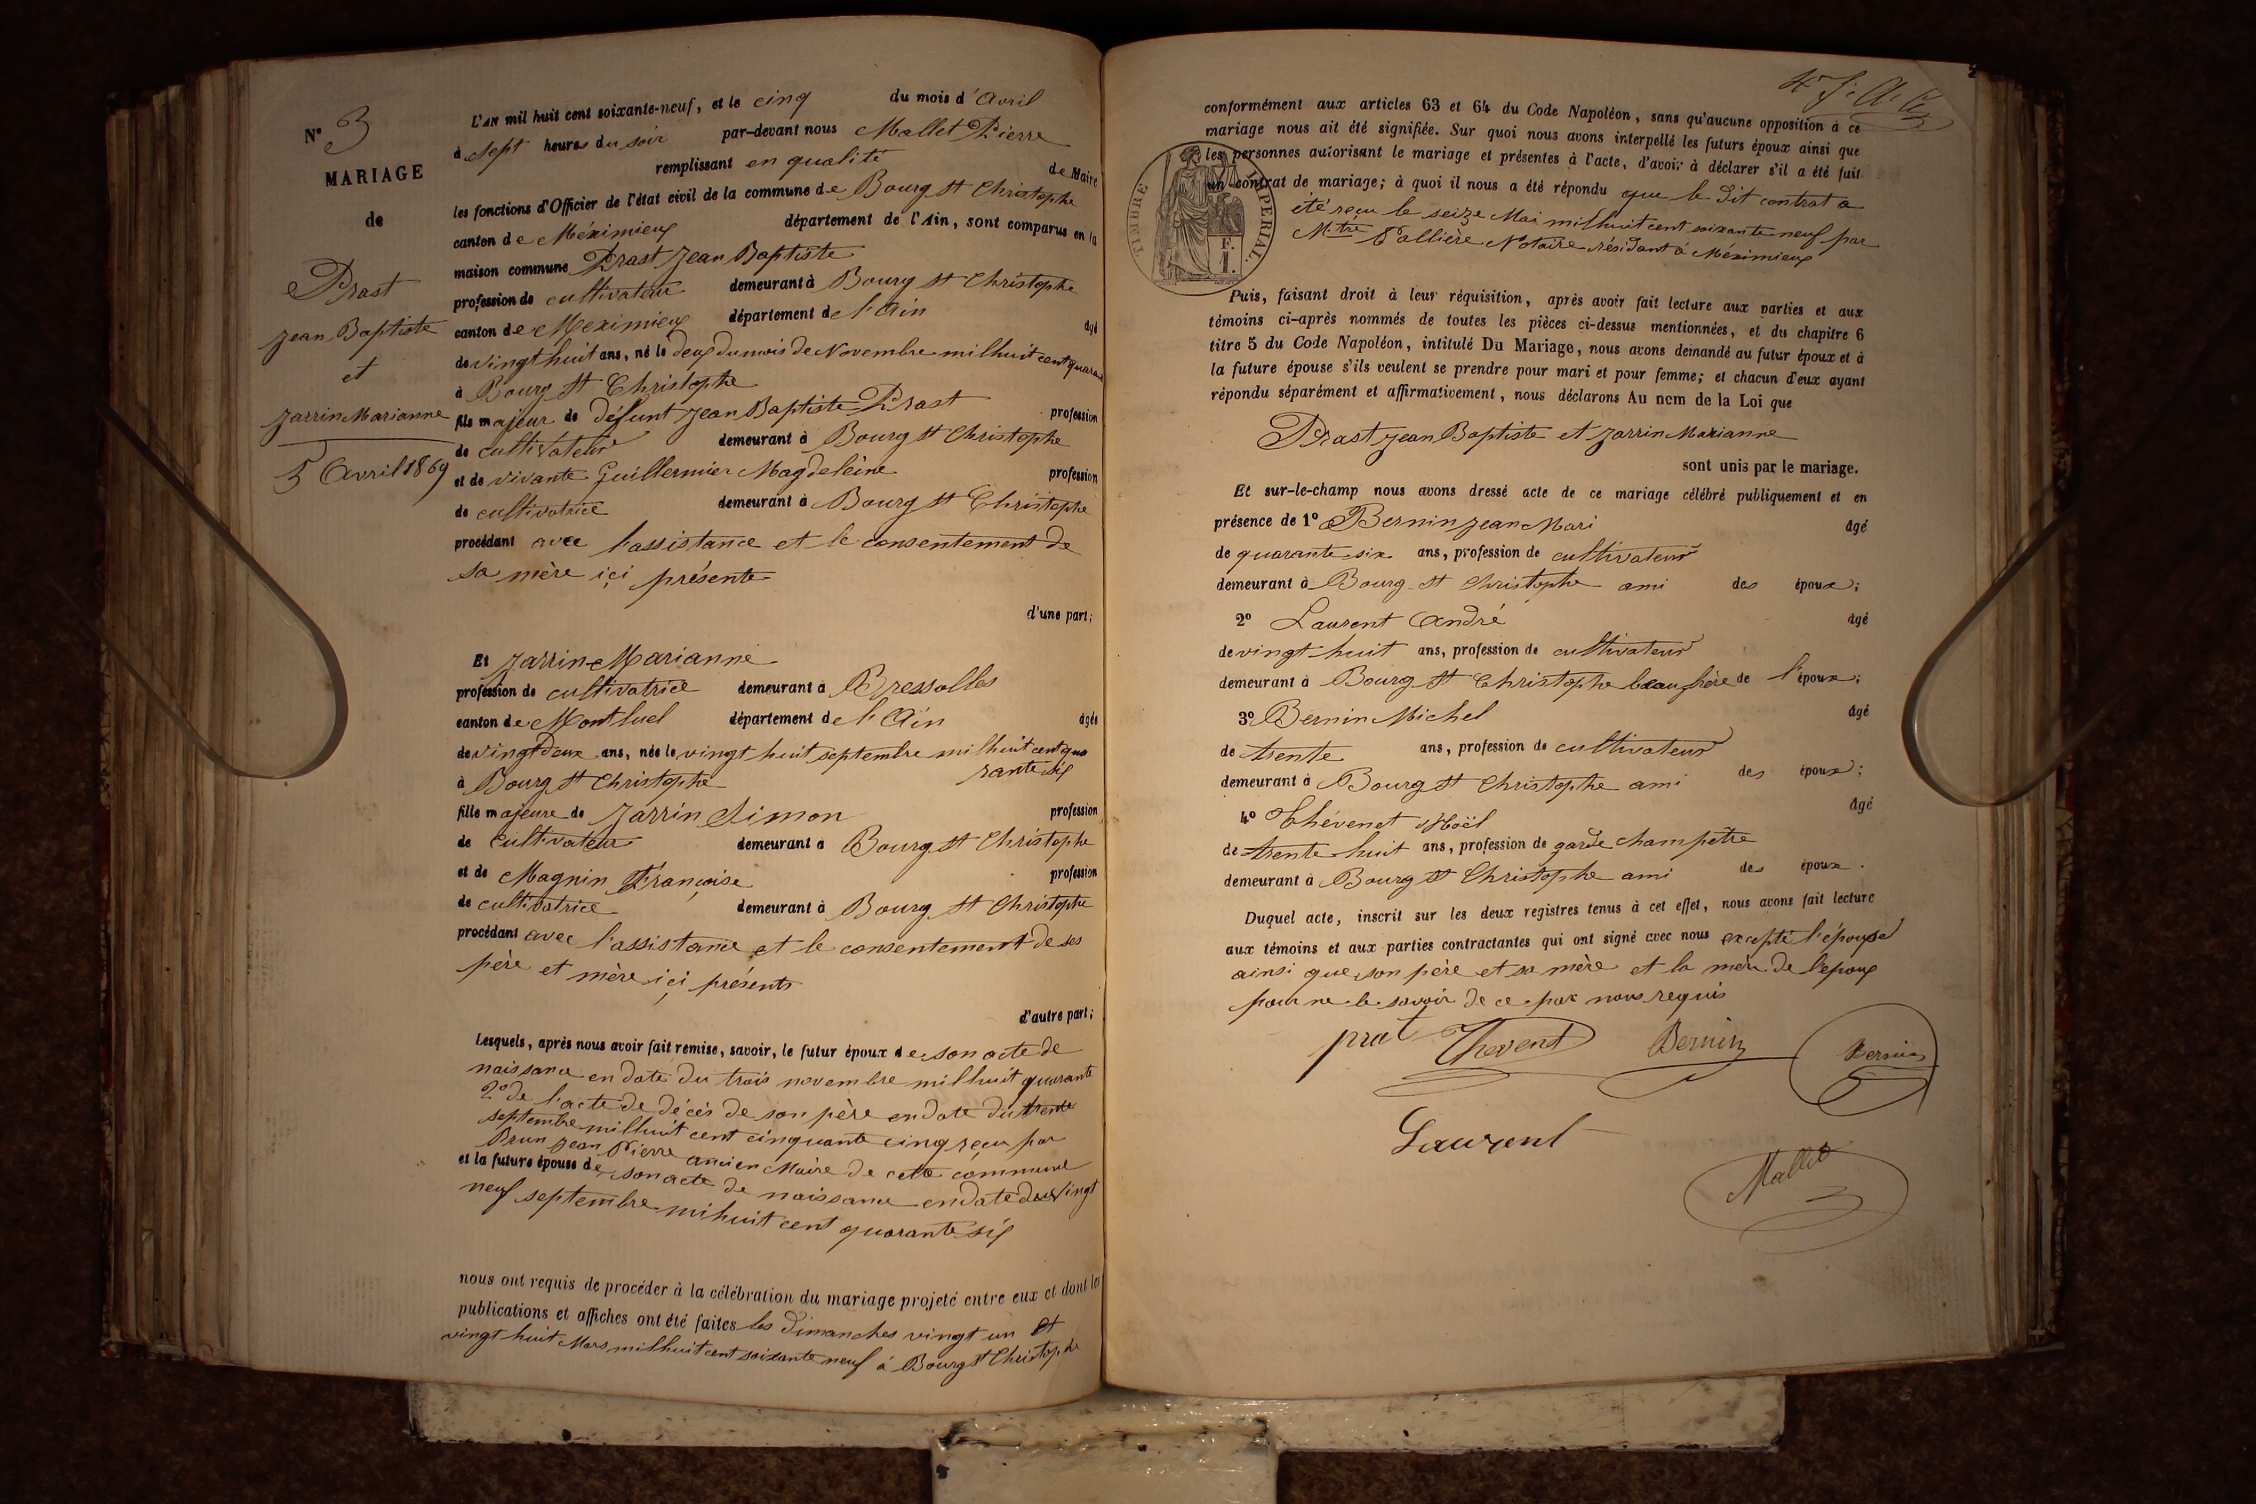 N° 3
MARIAGE
de
Prast
Jean Baptiste
et
Jarrin Marianne
5 Avril 1869
L'AN mil huit cent soixante-neuf, et le cinq du mois d'Avril
à sept heures du soir par-devant nous Mallet Pierre
remplissant en qualité de Maire
les fonctions d'Officier de l'état civil de la commune de Bourg St Christophe
canton de Méximieux département de l'Ain, sont comparus en la
maison commune Prast Jean Baptiste
profession de cultivateur demeurant à Bourg St Christophe
canton de Méximieux département de l'Ain âgé
de vingt huit ans, né le deux du mois de Novembre mil huit cent quarante
à Bourg St Christophe
fils majeur de défunt Jean Baptiste Prast profession
de cultivateur demeurant à Bourg St Christophe
et de vivante Guillermier Magdeleine profession
de cultivatrice demeurant à Bourg St Christophe
procédant avec l'assistance et le consentement de
sa mère ici présente
d'une part;
Et Jarrin Marianne
profession de cultivatrice demeurant à Bressolles
canton de Montluel département de l'Ain âgée
de vingt deux ans, née le vingt huit septembre mil huit cent qua
rante six
à Bourg St Christophe
fille majeure de Jarrin Simon profession
de cultivateur demeurant à Bourg St Christophe
et de Magnin Françoise profession
de cultivatrice demeurant à Bourg St Christophe
procédant avec l'assistance et le consentement de ses
père et mère ici présents
d'autre part;
Lesquels, après nous avoir fait remise, savoir, le futur époux de son acte de
naissance en date du trois novembre mil huit quarante
2° de l'acte de décès de son père en date du trente
septembre mil huit cent cinquante cinq reçu par
Brun Jean Pierre ancien Maire de cette commune
et la future épouse de son acte de naissance en date du vingt
neuf septembre mil huit cent quarante six
nous ont requis de procéder à la célébration du mariage projeté entre eux et dont les
publications et affiches ont été faites les dimanches vingt un et
vingt huit Mars mil huit cent soixante neuf à Bourg St Christophe
conformément aux articles 63 et 64 du Code Napoléon, sans qu'aucune opposition à ce
mariage nous ait été signifiée. Sur quoi nous avons interpellé les futurs époux ainsi que
les personnes autorisant le mariage et présentes à l'acte, d'avoir à déclarer s'il a été fait
un contrat de mariage; à quoi il nous a été répondu que le dit contrat a
été reçu le seize Mai mil huit cent soixante neuf par
Mtre Pallière Notaire résidant à Méximieux
TIMBRE IMPERIAL.
F.
1.
Puis, faisant droit à leur réquisition, après avoir fait lecture aux parties et aux
témoins ci-après nommés de toutes les pièces ci-dessus mentionnées, et du chapitre 6
titre 5 du Code Napoléon, intitulé Du Mariage, nous avons demandé au futur époux et à
la future épouse s'ils veulent se prendre pour mari et pour femme; et chacun d'eux ayant
répondu séparément et affirmativement, nous déclarons Au nom de la Loi que
Prast Jean Baptiste et Jarrin Marianne
sont unis par le mariage.
Et sur-le-champ nous avons dressé acte de ce mariage célébré publiquement et en
présence de 1° Bernin Jean Mari âgé
de quarante six ans, profession de cultivateur
demeurant à Bourg St Christophe ami des époux;
2° Laurent André âgé
de vingt huit ans, profession de cultivateur
demeurant à Bourg St Christophe beau frère de l'époux;
3° Bernin Michel âgé
de trente ans, profession de cultivateur
demeurant à Bourg St Christophe ami des époux;
4° Thévenet Noël âgé
de trente huit ans, profession de garde champêtre
demeurant à Bourg St Christophe ami des époux.
Duquel acte, inscrit sur les deux registres tenus à cet effet, nous avons fait lecture
aux témoins et aux parties contractantes qui ont signé avec nous excepté l'épouse
ainsi que son père et sa mère et la mère de l'époux
pour ne le savoir de ce par nous requis
prat Thevent Bernin Bernin
Laurent
Mallet